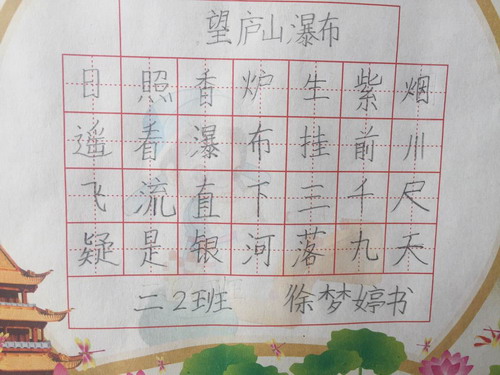 望庐山瀑布
日照香炉生紫烟
遥看瀑布挂前川
飞流直下三千尺
疑是银河落九天
二2班 徐梦婷书